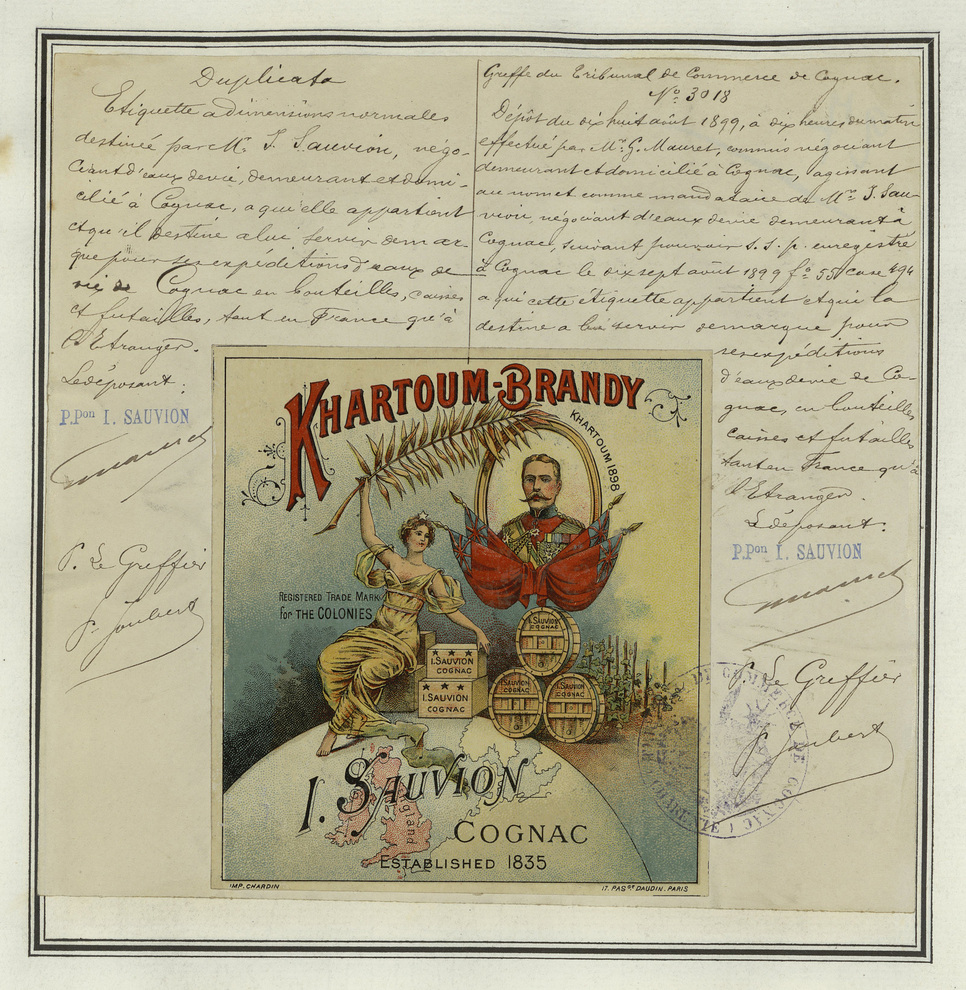 Duplicata
Etiquette à dimensions normales
destinée par Mr. I. Sauvion, négo-
ciant d'eaux de vie, demeurant et domi-
cilié à Cognac, a qui elle appartient
et qu'il destine a lui servir de mar-
que pour ses expéditions d'eaux de
vie de Cognac en bouteilles, caisses
et futailles, tant en France qu'à
l'Etranger.
Le déposant:
P.Pon I. SAUVION
P. Le Greffier
P. Joubert
Greffe du Tribunal de Commerce de Cognac.
No. 3018
Dépôt du dix huit août 1899, à dix heures du matin
effectué par Mr. G. Mauret, commis négociant
demeurant et domicilié à Cognac, agissant
au nom et comme mandataire de Mr. I. Sau-
vion, négociant d'eaux de vie demeurant à
Cognac, suivant pouvoir s. s. p. enregistré
à Cognac le dix sept août 1899 fo. 55 case 494
a qui cette étiquette appartient et qui la
destine a lui servir de marque pour
ses expéditions
d'eaux de vie de Co-
gnac, en bouteilles
caisses et futailles
tant en France qu'à
l'Etranger.
Le déposant:
P.Pon I. SAUVION
P. Le Greffier
P. Joubert
KHARTOUM-BRANDY
KHARTOUM 1898
REGISTERED TRADE MARK
for THE COLONIES
I. SAUVION
COGNAC
I. SAUVION
COGNAC
I. SAUVION
COGNAC
I. SAUVION
COGNAC
I. SAUVION
COGNAC
I. SAUVION
England
COGNAC
ESTABLISHED 1835
IMP. CHARDIN
17. PASGE DAUDIN. PARIS
DE COMMERCE DE COGNAC